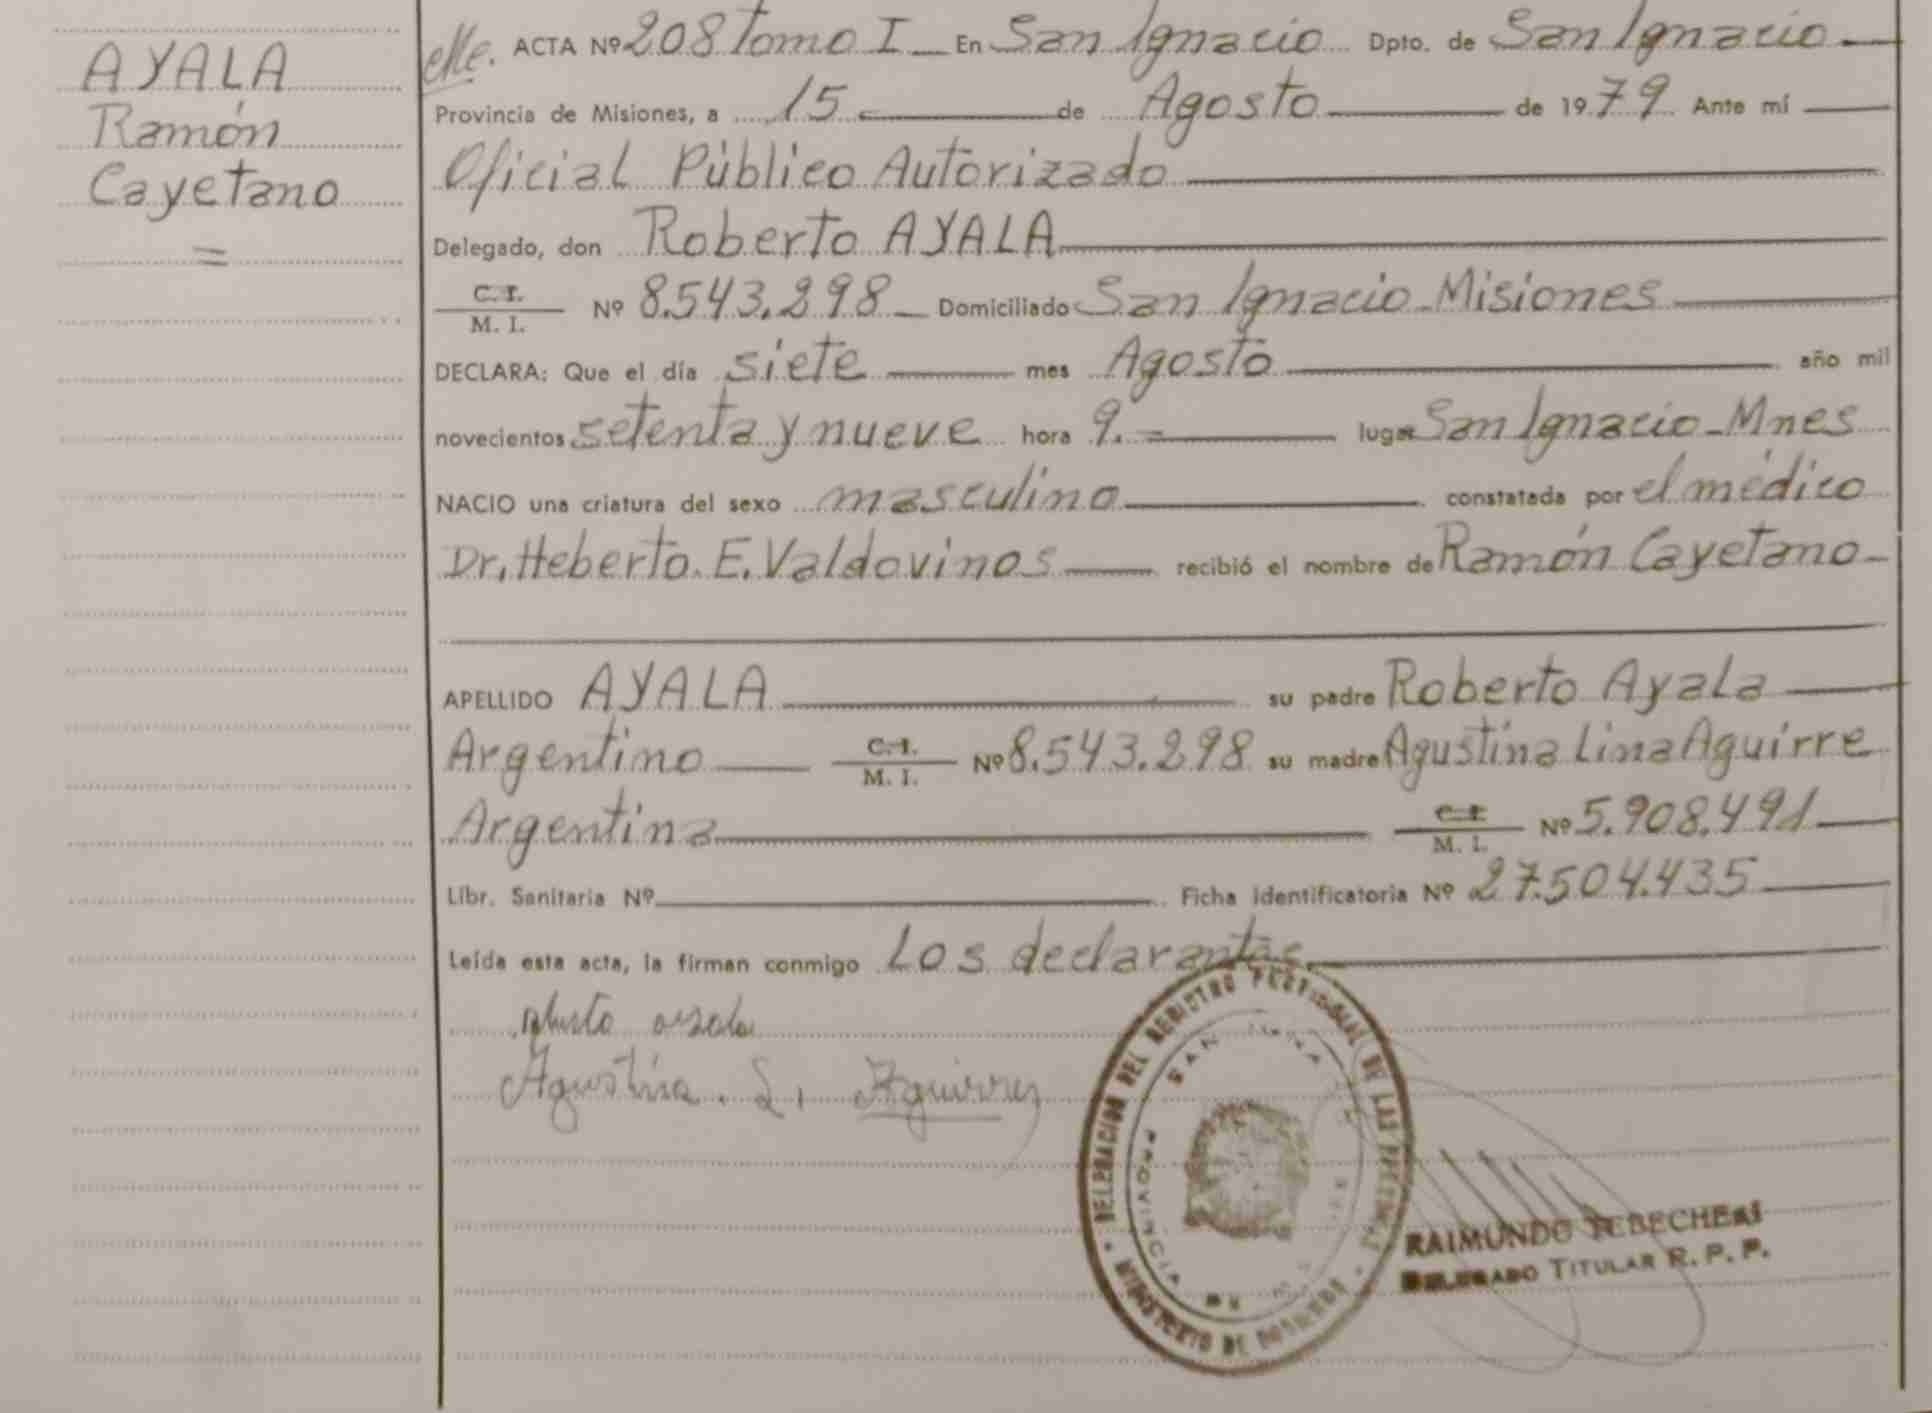 AYALA
Ramón
Cayetano
=
ACTA Nº 208 Tomo I En San Ignacio Dpto. de San Ignacio
Provincia de Misiones, a 15 de Agosto de 1979 Ante mí
Oficial Público Autorizado
Delegado, don Roberto AYALA
C. I. / M. I. Nº 8.543.298 Domiciliado San Ignacio - Misiones
DECLARA: Que el día siete mes Agosto año mil
novecientos setenta y nueve hora 9.= lugar San Ignacio - Mnes
NACIO una criatura del sexo masculino constatada por el médico
Dr. Heberto. E. Valdovinos recibió el nombre de Ramón Cayetano
APELLIDO AYALA su padre Roberto Ayala
Argentino C. I. / M. I. Nº 8.543.298 su madre Agustina Lina Aguirre
Argentina C. I. / M. I. Nº 5.908.491
Libr. Sanitaria Nº Ficha identificatoria Nº 27.504.435
Leída esta acta, la firman conmigo Los declarantes
Agustina. L. Aguirre
DELEGACION DEL REGISTRO PROVINCIAL DE LAS PERSONAS
SAN IGNACIO
PROVINCIA DE MISIONES
MINISTERIO DE GOBIERNO
RAIMUNDO
DELEGADO TITULAR R. P. P.